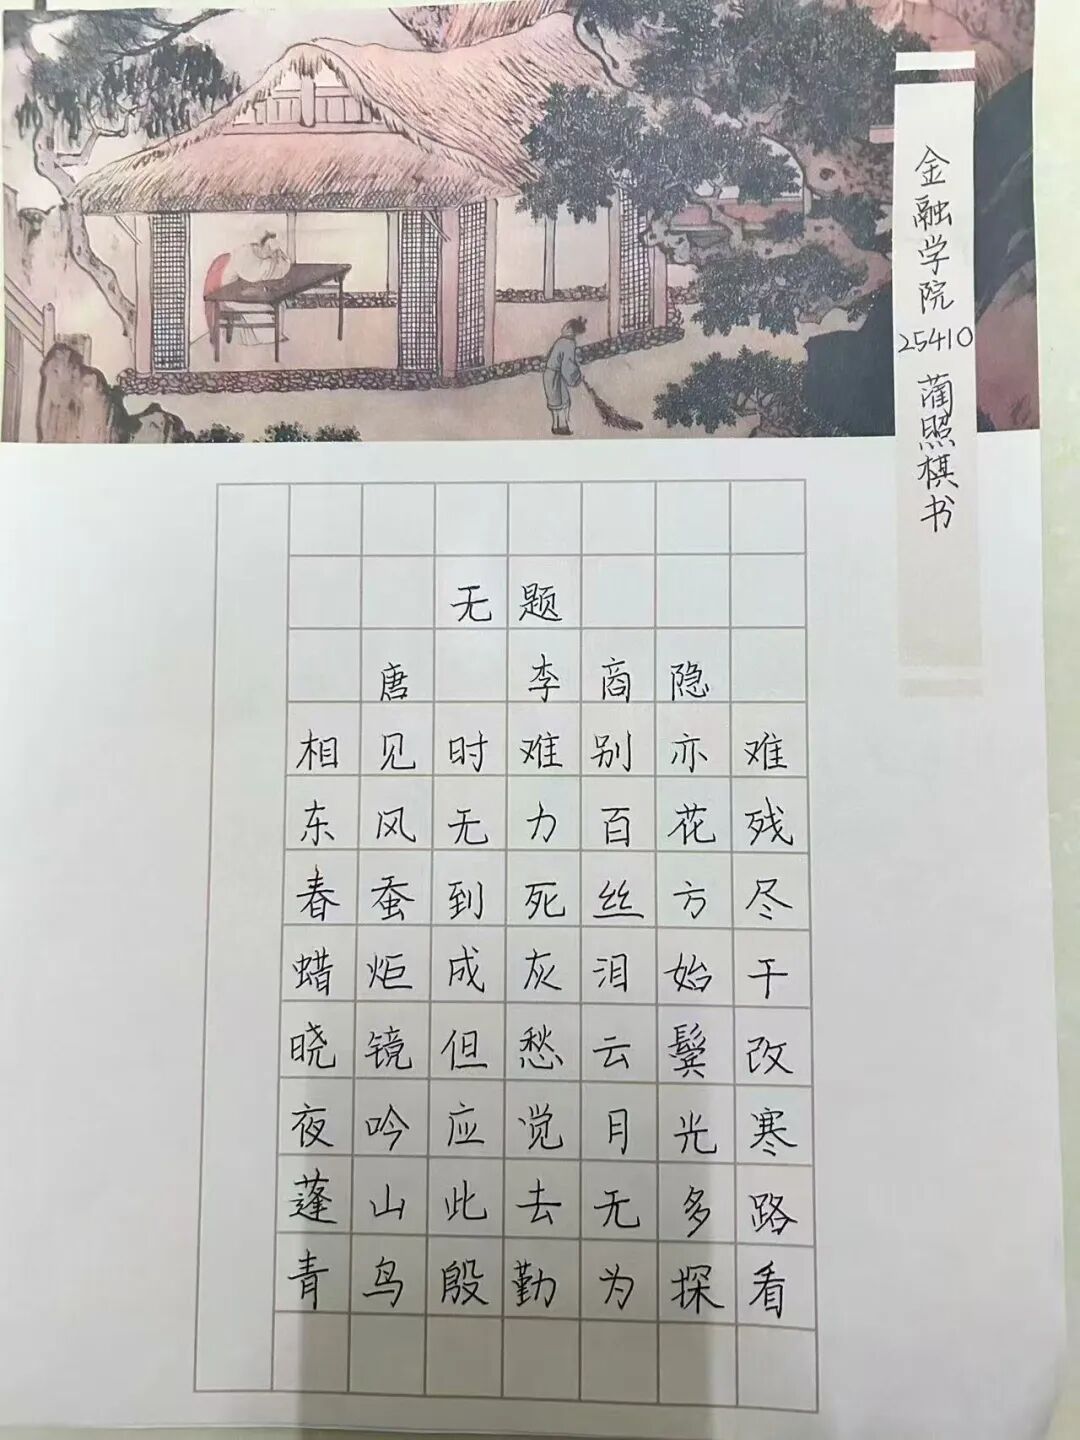 无题
唐 李商隐
相见时难别亦难
东风无力百花残
春蚕到死丝方尽
蜡炬成灰泪始干
晓镜但愁云鬓改
夜吟应觉月光寒
蓬山此去无多路
青鸟殷勤为探看
金融学院25410 蔺照棋书